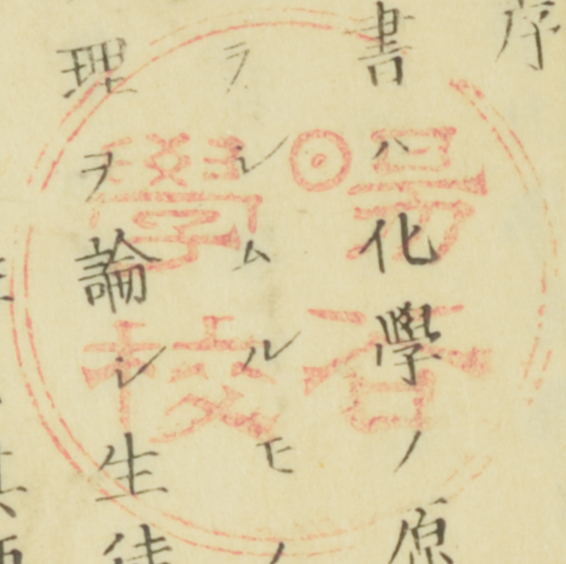 序
書ハ化學ノ原
ヲシムルモノ
理ヲ論シ生徒
學校